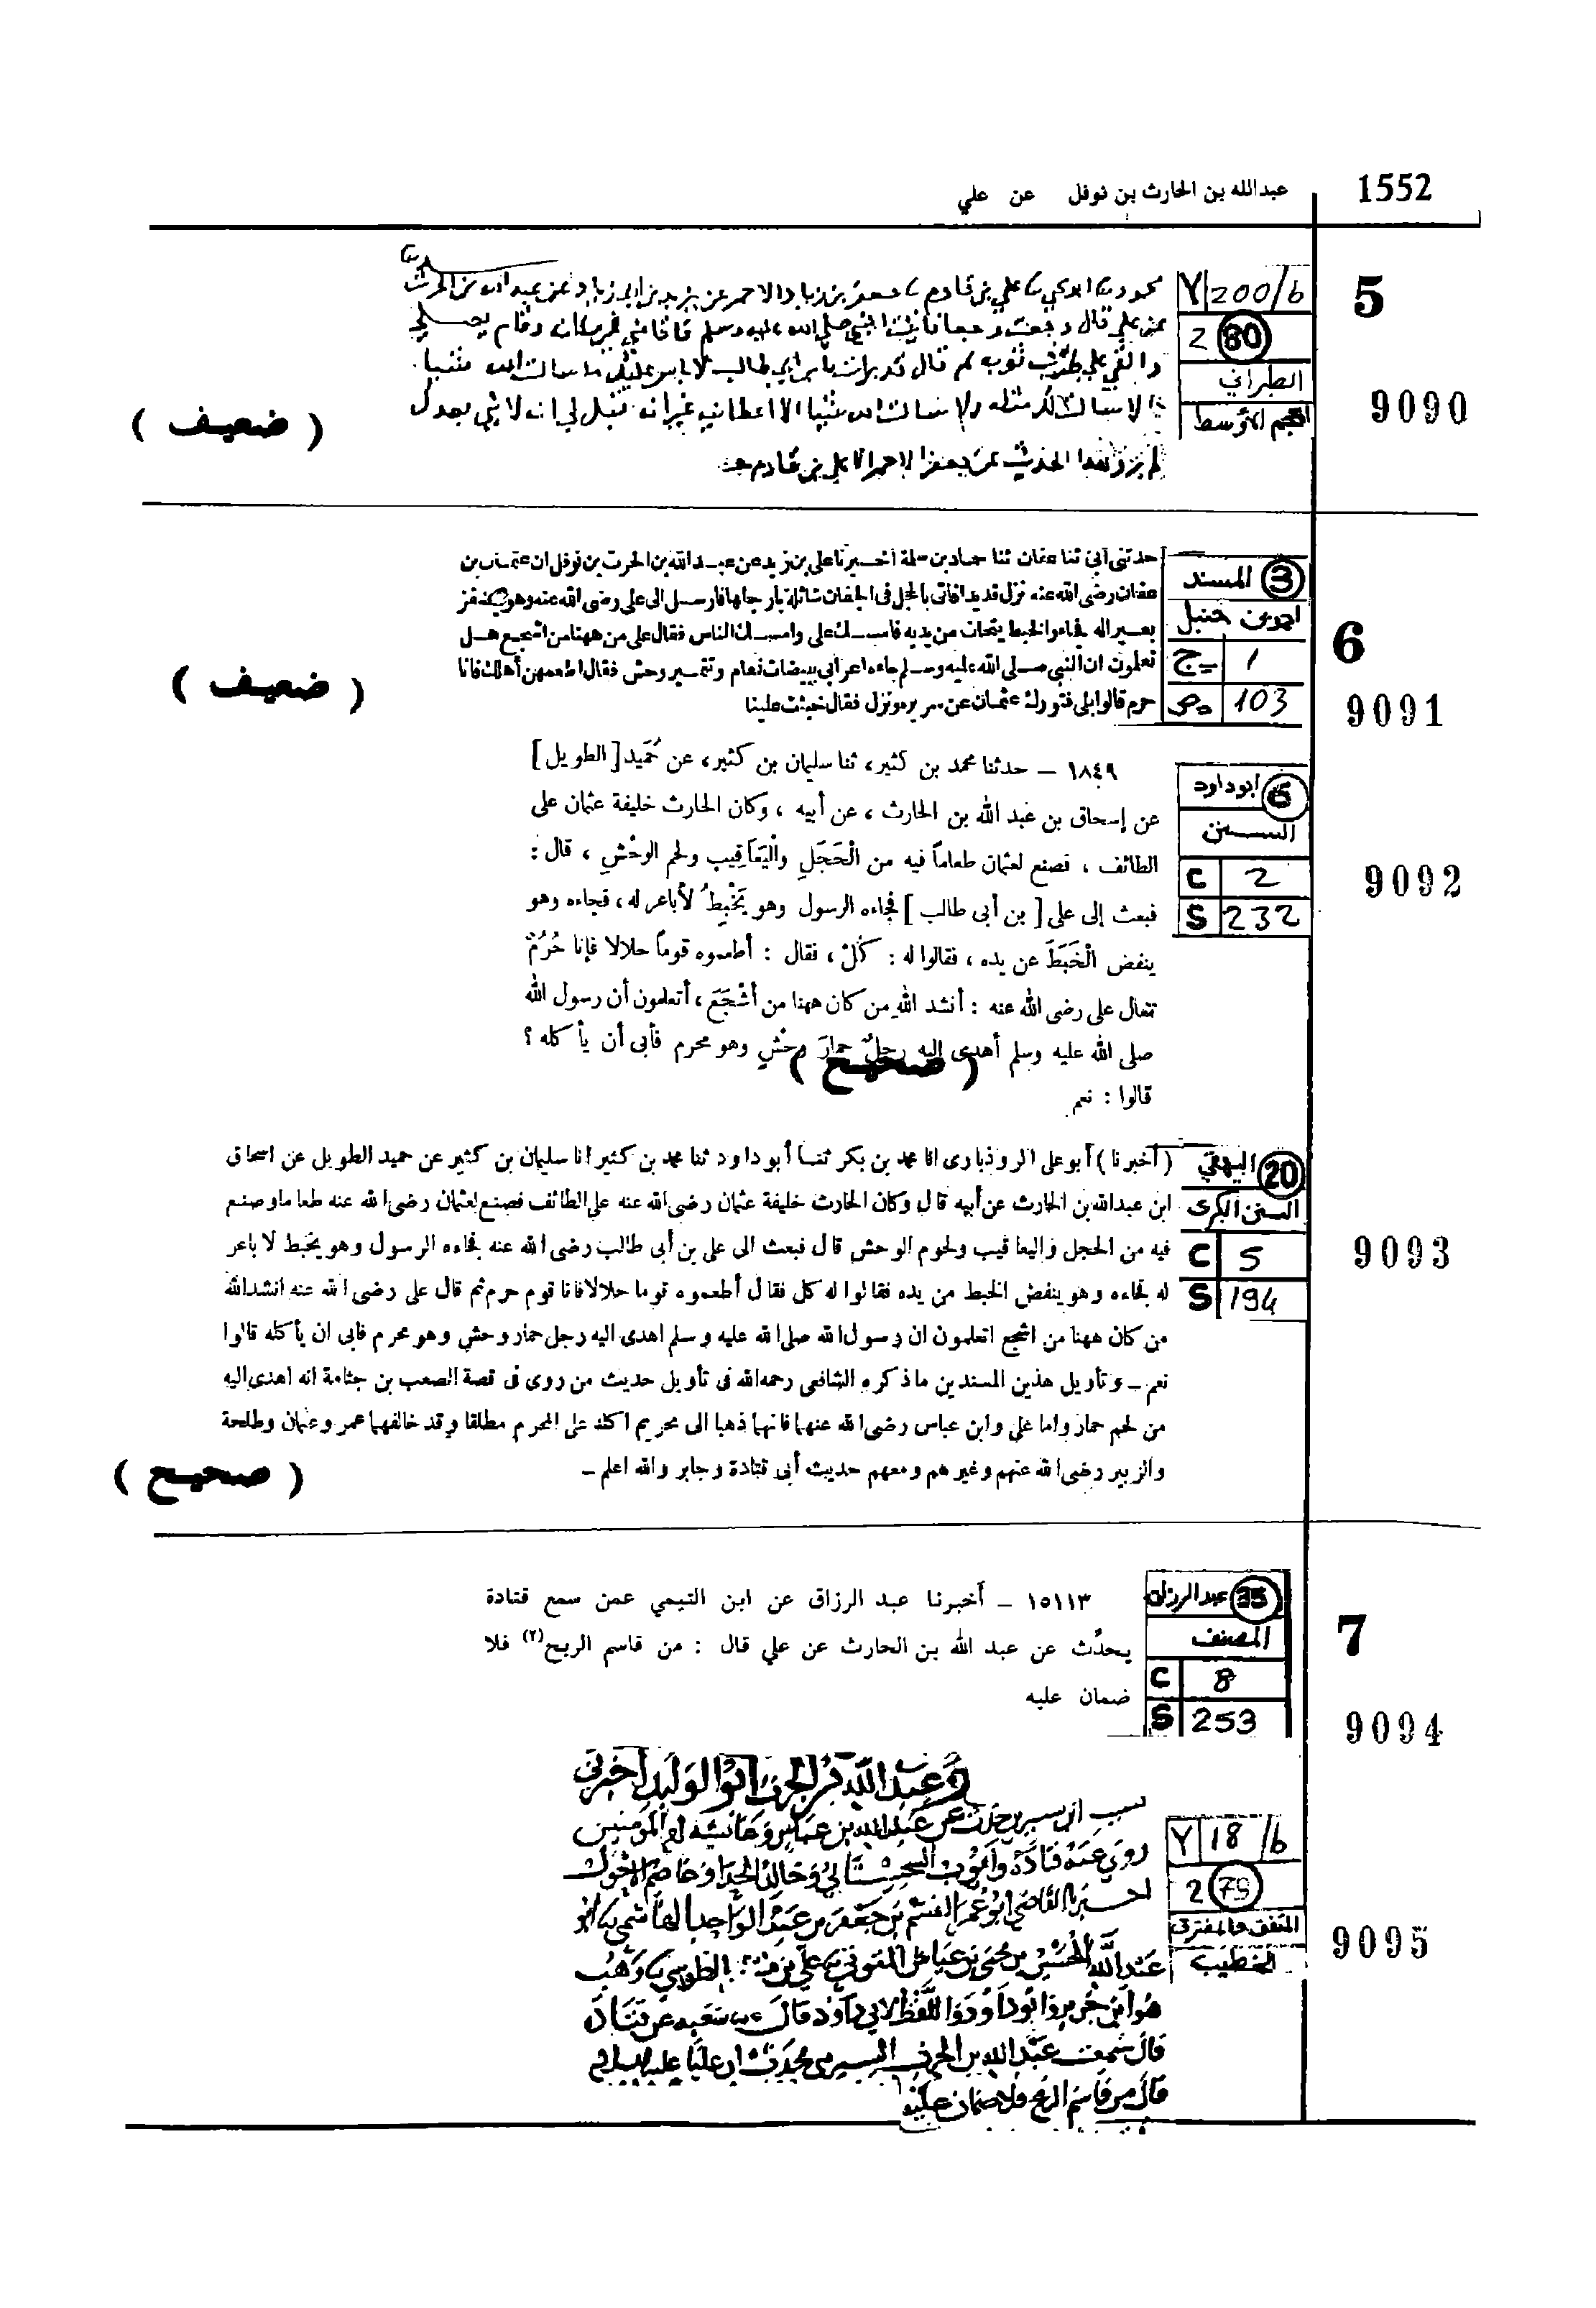 1552
عبدالله بن الحارث بن نوفل عن علي
5
Y 200/b
2 80
الطبراني
المعجم الأوسط
9090
( ضعيف )
عن علي قال وجعت وجعا فاتيت النبي صلى الله عليه وسلم فاقامني في مكانه وقام يصلي
والقى علي طرف ثوبه ثم قال قد برات يا بن ابي طالب لا باس عليك ما سالت الله شيا
الا سالت لك مثله ولا سالت الله شيا الا اعطانيه غير انه قيل لي انه لا نبي بعدك
لم يرو هذا الحديث عن جعفر الاحمر الا علي بن قادم
6
3 المسند
احمد بن حنبل
ج 1
ص 103
9091
( ضعيف )
حدثنى أبي ثنا عفان ثنا حماد بن سلمة أخبرنا على بن زيد عن عبد الله بن الحرث بن نوفل ان عثمان بن
عفان رضى الله عنه نزل قديدا فاتى بالحجل فى الجفان شائلة بارجلها فارسل الى على رضى الله عنه وهو يضفز
بعيرا له فجاء والخبط يتحات من يديه فامسك على وامسك الناس فقال على من ههنا من اشجع هل
تعلمون ان النبي صلى الله عليه وسلم جاءه اعرابي ببيضات نعام وتتمير وحش فقال اطعمهن أهلك فانا
حرم قالوا بلى فتورك عثمان عن سريره ونزل فقال خبثت علينا
6 ابو داود
السنن
C 2
S 232
9092
١٨٤٩ – حدثنا محمد بن كثير، ثنا سليمان بن كثير، عن حُمَيد [ الطويل ]
عن إسحاق بن عبد الله بن الحارث ، عن أبيه ، وكان الحارث خليفة عثمان على
الطائف ، فصنع لعثمان طعاماً فيه من الْحَجَلِ والْيَعَاقِيب ولحم الوحْشِ ، قال :
فبعث إلى على [ بن أبى طالب ] فجاءه الرسول وهو يَخْبِطُ لأباعر له ، فجاءه وهو
ينفض الْخَبَطَ عن يده ، فقالوا له : كُلْ ، فقال : أطعموه قوماً حلالا فإنا حُرُمٌ
فقال على رضى الله عنه : أنشد الله من كان ههنا من أشْجَعَ ، أتعلمون أن رسول الله
صلى الله عليه وسلم أهدى إليه رجلٌ حمارَ وحْشٍ وهو محرم فأبى أن يأكله ؟
( صحيح )
قالوا : نعم
20 البيهقي
السنن الكبرى
C 5
S 194
9093
( أخبرنا ) أبو على الروذبارى انا محمد بن بكر ثنا أبو داود ثنا محمد بن كثير انا سليمان بن كثير عن حميد الطويل عن اسحاق
ابن عبدالله بن الحارث عن أبيه قال وكان الحارث خليفة عثمان رضى الله عنه على الطائف فصنع لعثمان رضى الله عنه طعاما وصنع
فيه من الحجل واليعاقيب ولحوم الوحش قال فبعث الى على بن أبى طالب رضى الله عنه فجاءه الرسول وهو يخبط لاباعر
له فجاءه وهو ينفض الخبط من يده فقالوا له كل فقال أطعموه قوما حلالا فانا قوم حرم ثم قال على رضى الله عنه انشدالله
من كان ههنا من اشجع اتعلمون ان رسول الله صلى الله عليه وسلم اهدى اليه رجل حمار وحش وهو محرم فابى ان يأكله قالوا
نعم – وتأويل هذين المسندين ما ذكره الشافعى رحمه الله فى تأويل حديث من روى فى قصة الصعب بن جثامة انه اهدى اليه
من لحم حمار واما على وابن عباس رضى الله عنهما فانهما ذهبا الى تحريم اكله على المحرم مطلقا وقد خالفهما عمر وعثمان وطلحة
والزبير رضى الله عنهم وغيرهم ومعهم حديث أبى قتادة وجابر والله اعلم –
( صحيح )
7
35 عبد الرزاق
المصنف
C 8
S 253
9094
١٥١١٣ – أخبرنا عبد الرزاق عن ابن التيمي عمن سمع قتادة
يحدِّث عن عبد الله بن الحارث عن علي قال : من قاسم الربح(٢) فلا
ضمان عليه
Y 18/b
2 79
المتفق والمفترق
الخطيب
9095
وعبد الله بن الحرث ابو الوليد اخبرني
نسيب ابن سيرين حدث عن عبد الله بن عباس وعائشة ام المؤمنين
روى عنه قتادة وايوب السختياني وخالد الحذا وعاصم الاحول
اخبرنا القاضي ابو عمر القسم بن جعفر بن عبد الواحد الهاشمي
هو ابن جرير وابو داود واللفظ لابي داود قال شعبه عن قتادة
قال سمعت عبد الله بن الحرث يحدث ان عليا عليه السلام
قال من قاسم الربح فلا ضمان عليه